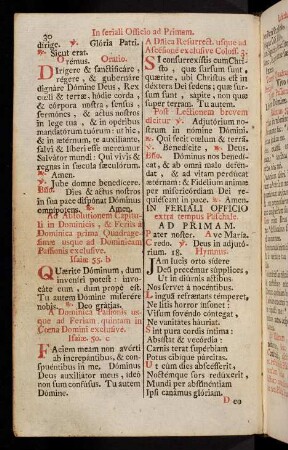 30
In feriali Officio ad Primam.
dirige. ℣. Glória Patri.
℟. Sicut erat.
Orémus. Oratio.
Dirígere & sanctificáre,
régere, & gubernáre
dignáre Dómine Deus, Rex
cœli & terræ, hódie corda
& córpora nostra, sensus,
sermónes, & actus nostros
in lege tua, & in opéribus
mandatórum tuórum: ut hic,
& in ætérnum, te auxiliante,
salvi & líberi esse mereámur
Salvátor mundi: Qui vivis &
regnas in sǽcula sæculórum.
℟. Amen.
℣. Jube domne benedícere.
Bñd. Dies & actus nostros
in sua pace dispónat Dóminus
omnípotens. ℟. Amen.
Ad Absolutionem Capitu-
li in Dominicis, & Feriis a
Dominica prima Quadrage-
simæ usque ad Dominicam
Passionis exclusive.
Isaiæ 55. b
Quǽrite Dóminum, dum
inveníri potest: invo-
cáte eum, dum prope est.
Tu autem Dómine miserére
nobis. ℟. Deo grátias.
A Dominica Passionis us-
que ad Feriam quintam in
Cœna Domini exclusive.
Isaiæ. 50. c
Fáciem meam non avérti
ab increpántibus, & con-
spuéntibus in me. Dóminus
Deus auxiliátor meus, ideo
non sum confúsus. Tu autem
Dómine.
A Dñica Resurrect. usque ad
Ascensionē exclusive Coloss. 3.
Si consurrexístis cum Chri-
sto, quæ sursum sunt
quǽrite, ubi Christus est in
déxtera Dei sedens; quæ sur-
sum sunt, sápite, non quæ
super terram. Tu autem.
Post Lectionem brevem
dicitur ℣. Adjutórium no-
strum in nómine Dómini.
℟. Qui fecit cœlum & terrā.
℣. Benedícite, ℟. Deus.
Bñd. Dóminus nos benedí-
cat, & ab omni malo defén-
dat, & ad vitam perdúcat
ætérnam: & Fidélium ánimæ
per misericórdiam Dei re-
quiéscant in pace. ℟. Amen.
IN FERIALI OFFICIO
extra tempus Paschale.
AD PRIMAM.
Pater noster. Ave María.
Credo. ℣. Deus in adjutó-
rium. 18. Hymnus.
Jam lucis orto sídere
Deum precémur súpplices,
Ut in diúrnis áctibus
Nos servet a nocéntibus.
Linguā refrǽnans témperet,
Ne litis horror ínsonet:
Visum fovéndo cóntegat,
Ne vanitátes háuriat.
Sint pura cordis íntima:
Absístat & vecórdia:
Carnis terat supérbiam
Potus cibíque párcitas.
Ut cum dies abscésserit,
Noctémque sors redúxerit,
Mundi per abstinéntiam
Ipsi canámus glóriam.
D eo